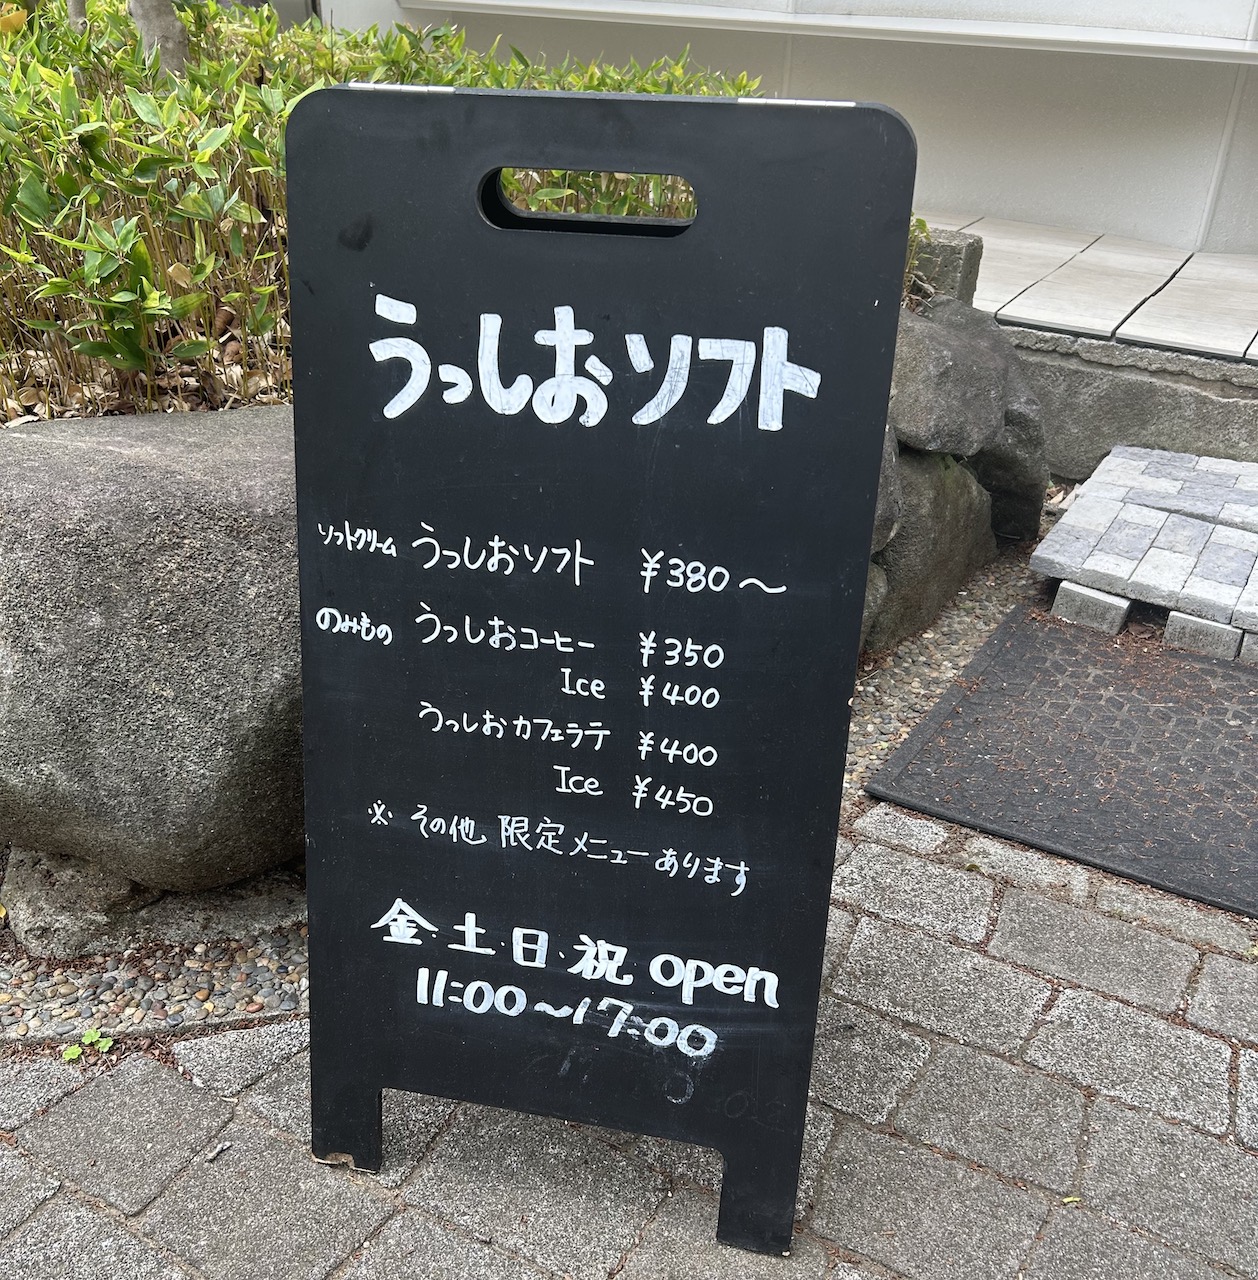 うっしおソフト
ソフトクリーム うっしおソフト ¥380～
のみもの うっしおコーヒー ¥350
Ice ¥400
うっしおカフェラテ ¥400
Ice ¥450
※ その他 限定メニューあります
金・土・日・祝 open
11:00～17:00